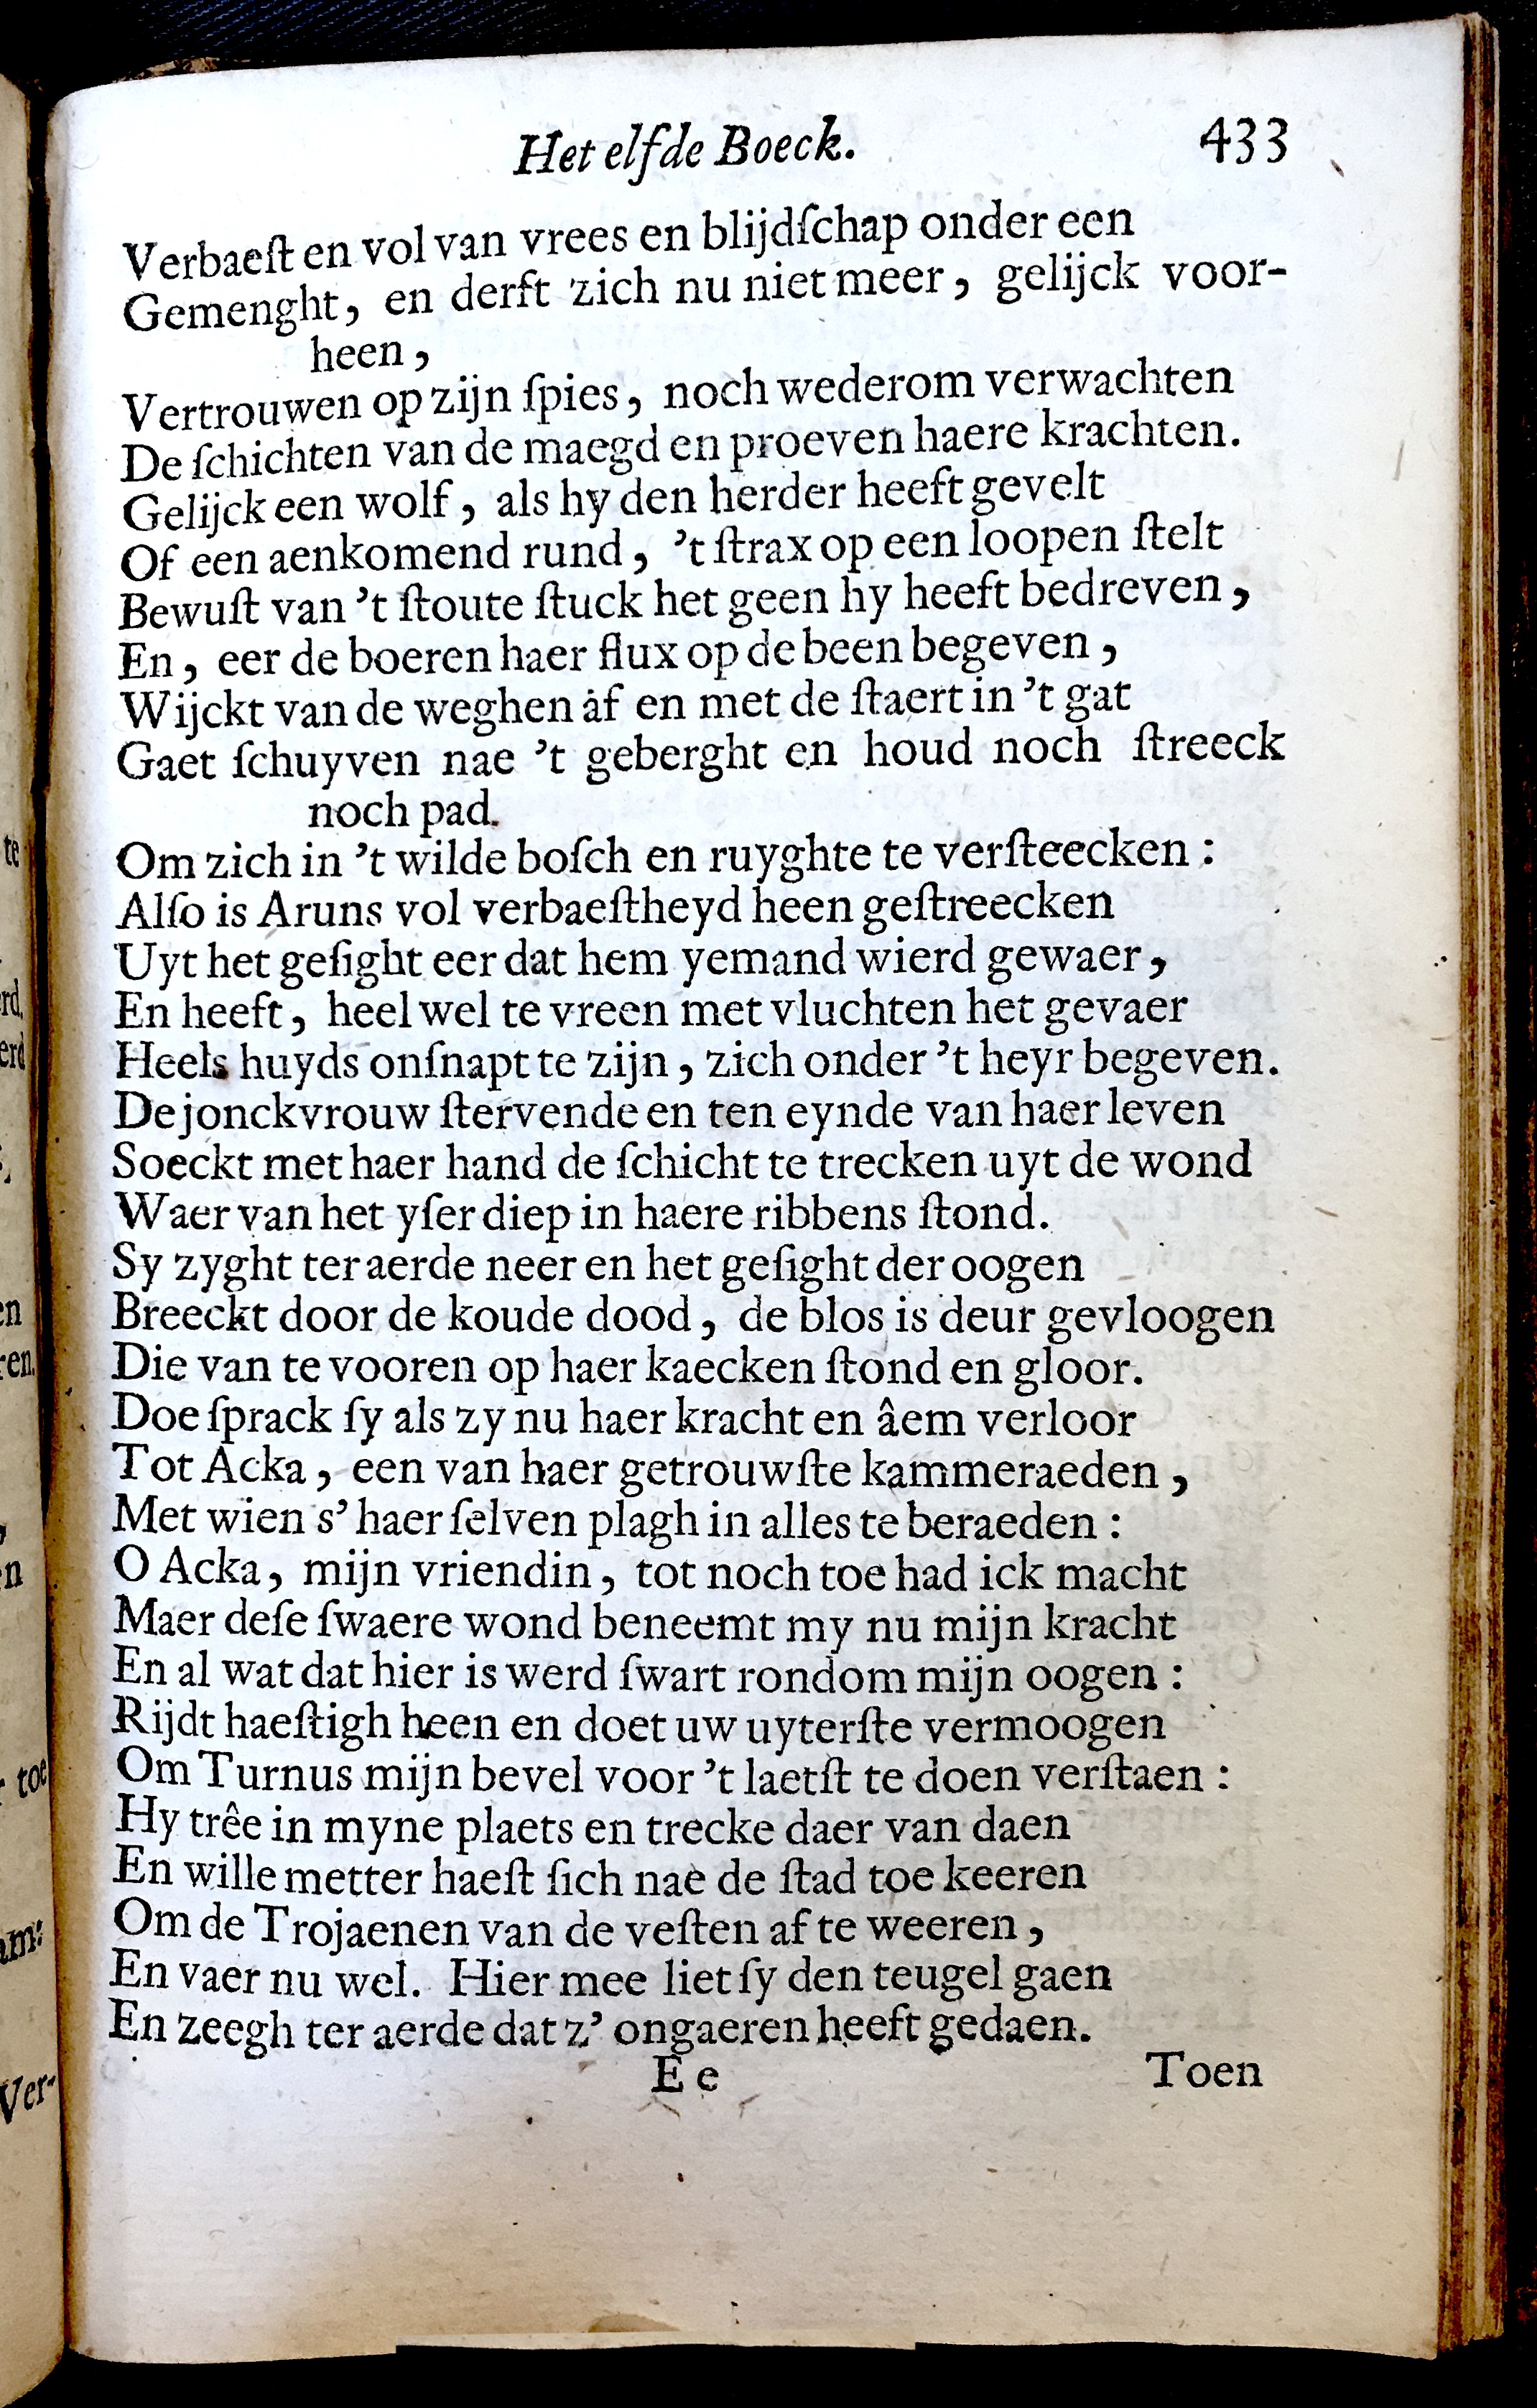 Het elfde Boeck. 433
Verbaeſt en vol van vrees en blijdſchap onder een
Gemenght, en derft zich nu niet meer, gelijck voor-
heen,
Vertrouwen op zijn ſpies, noch wederom verwachten
De ſchichten van de maegd en proeven haere krachten.
Gelijck een wolf, als hy den herder heeft gevelt
Of een aenkomend rund, 't ſtrax op een loopen ſtelt
Bewuſt van 't ſtoute ſtuck het geen hy heeft bedreven,
En, eer de boeren haer flux op de been begeven,
Wijckt van de weghen af en met de ſtaert in 't gat
Gaet ſchuyven nae 't geberght en houd noch ſtreeck
noch pad.
Om zich in 't wilde boſch en ruyghte te verſteecken:
Alſo is Aruns vol verbaeſtheyd heen geſtreecken
Uyt het geſight eer dat hem yemand wierd gewaer,
En heeft, heel wel te vreen met vluchten het gevaer
Heels huyds onſnapt te zijn, zich onder 't heyr begeven.
De jonckvrouw ſtervende en ten eynde van haer leven
Soeckt met haer hand de ſchicht te trecken uyt de wond
Waer van het yſer diep in haere ribbens ſtond.
Sy zyght ter aerde neer en het geſight der oogen
Breeckt door de koude dood, de blos is deur gevloogen
Die van te vooren op haer kaecken ſtond en gloor.
Doe ſprack ſy als zy nu haer kracht en âem verloor
Tot Acka, een van haer getrouwſte kammeraeden,
Met wien s' haer ſelven plagh in alles te beraeden:
O Acka, mijn vriendin, tot noch toe had ick macht
Maer deſe ſwaere wond beneemt my nu mijn kracht
En al wat dat hier is werd ſwart rondom mijn oogen:
Rijdt haeſtigh heen en doet uw uyterſte vermoogen
Om Turnus mijn bevel voor 't laetſt te doen verſtaen:
Hy trêe in myne plaets en trecke daer van daen
En wille metter haeſt ſich nae de ſtad toe keeren
Om de Trojaenen van de veſten af te weeren,
En vaer nu wel. Hier mee liet ſy den teugel gaen
En zeegh ter aerde dat z' ongaeren heeft gedaen.
E e Toen